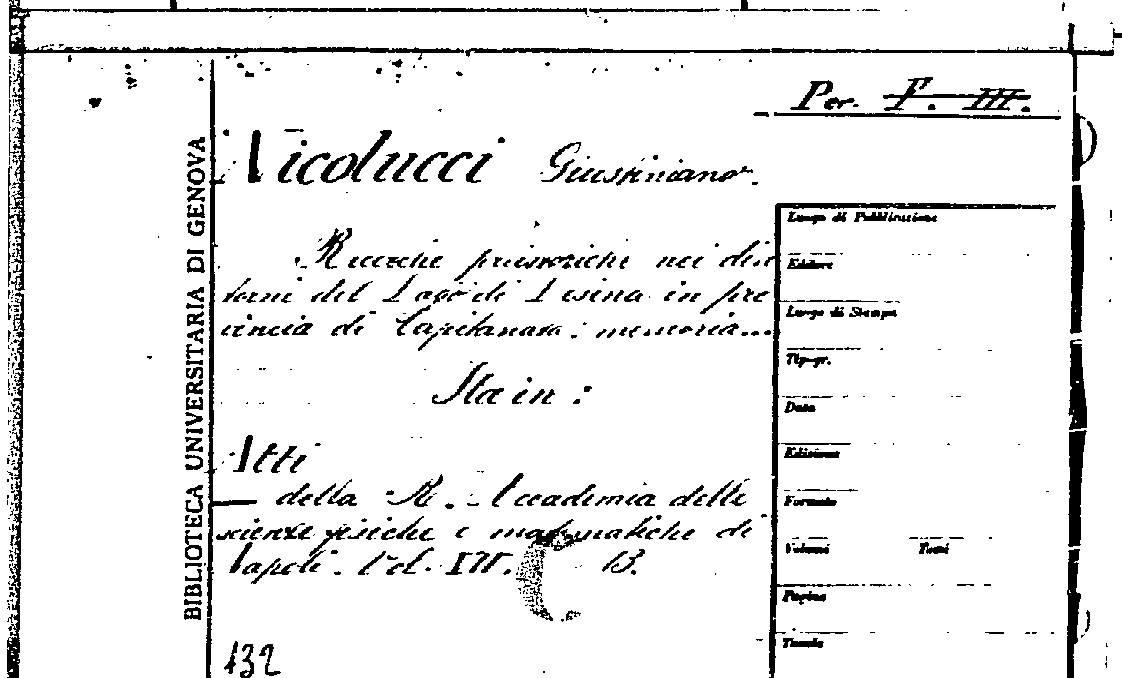 Per. F. III.
Nicolucci Giustiniano.
Ricerche preistoriche nei din
torni del Lago di Lesina in pro
vincia di Capitanata: memoria...
Sta in:
Atti
— della R. Accademia delle
scienze fisiche e matematiche di
Napoli. Vol. 13.
132
BIBLIOTECA UNIVERSITARIA DI GENOVA
Luogo di Pubblicazione
Editore
Luogo di Stampa
Tip-gr.
Data
Edizione
Formato
Volumi Tomi
Pagine
Tavole